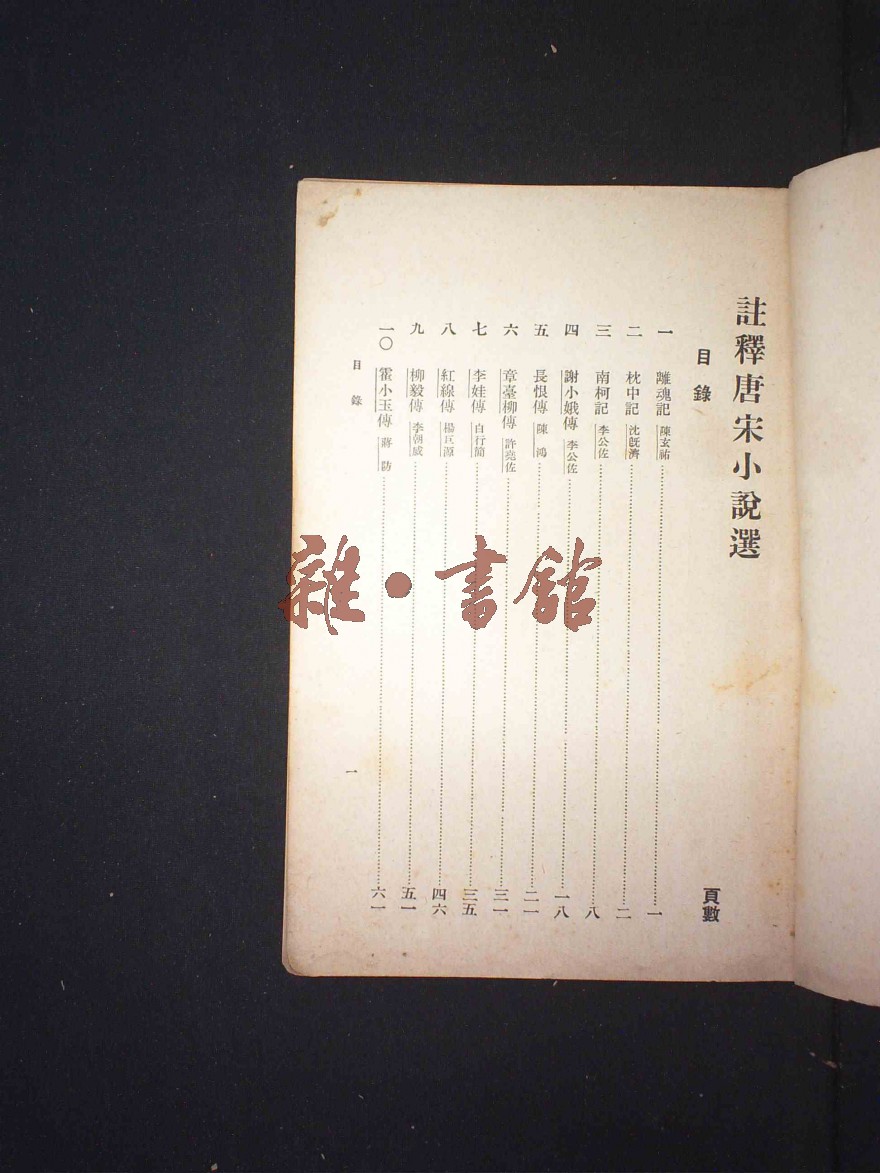 註釋唐宋小說選
目錄
頁數
一 離魂記 陳玄祐 一
二 枕中記 沈旣濟 二
三 南柯記 李公佐 八
四 謝小娥傳 李公佐 一八
五 長恨傳 陳鴻 二一
六 章臺柳傳 許堯佐 三一
七 李娃傳 白行簡 三五
八 紅線傳 楊巨源 四六
九 柳毅傳 李朝威 五一
一〇 霍小玉傳 蔣防 六一
目錄
一
雜·書館